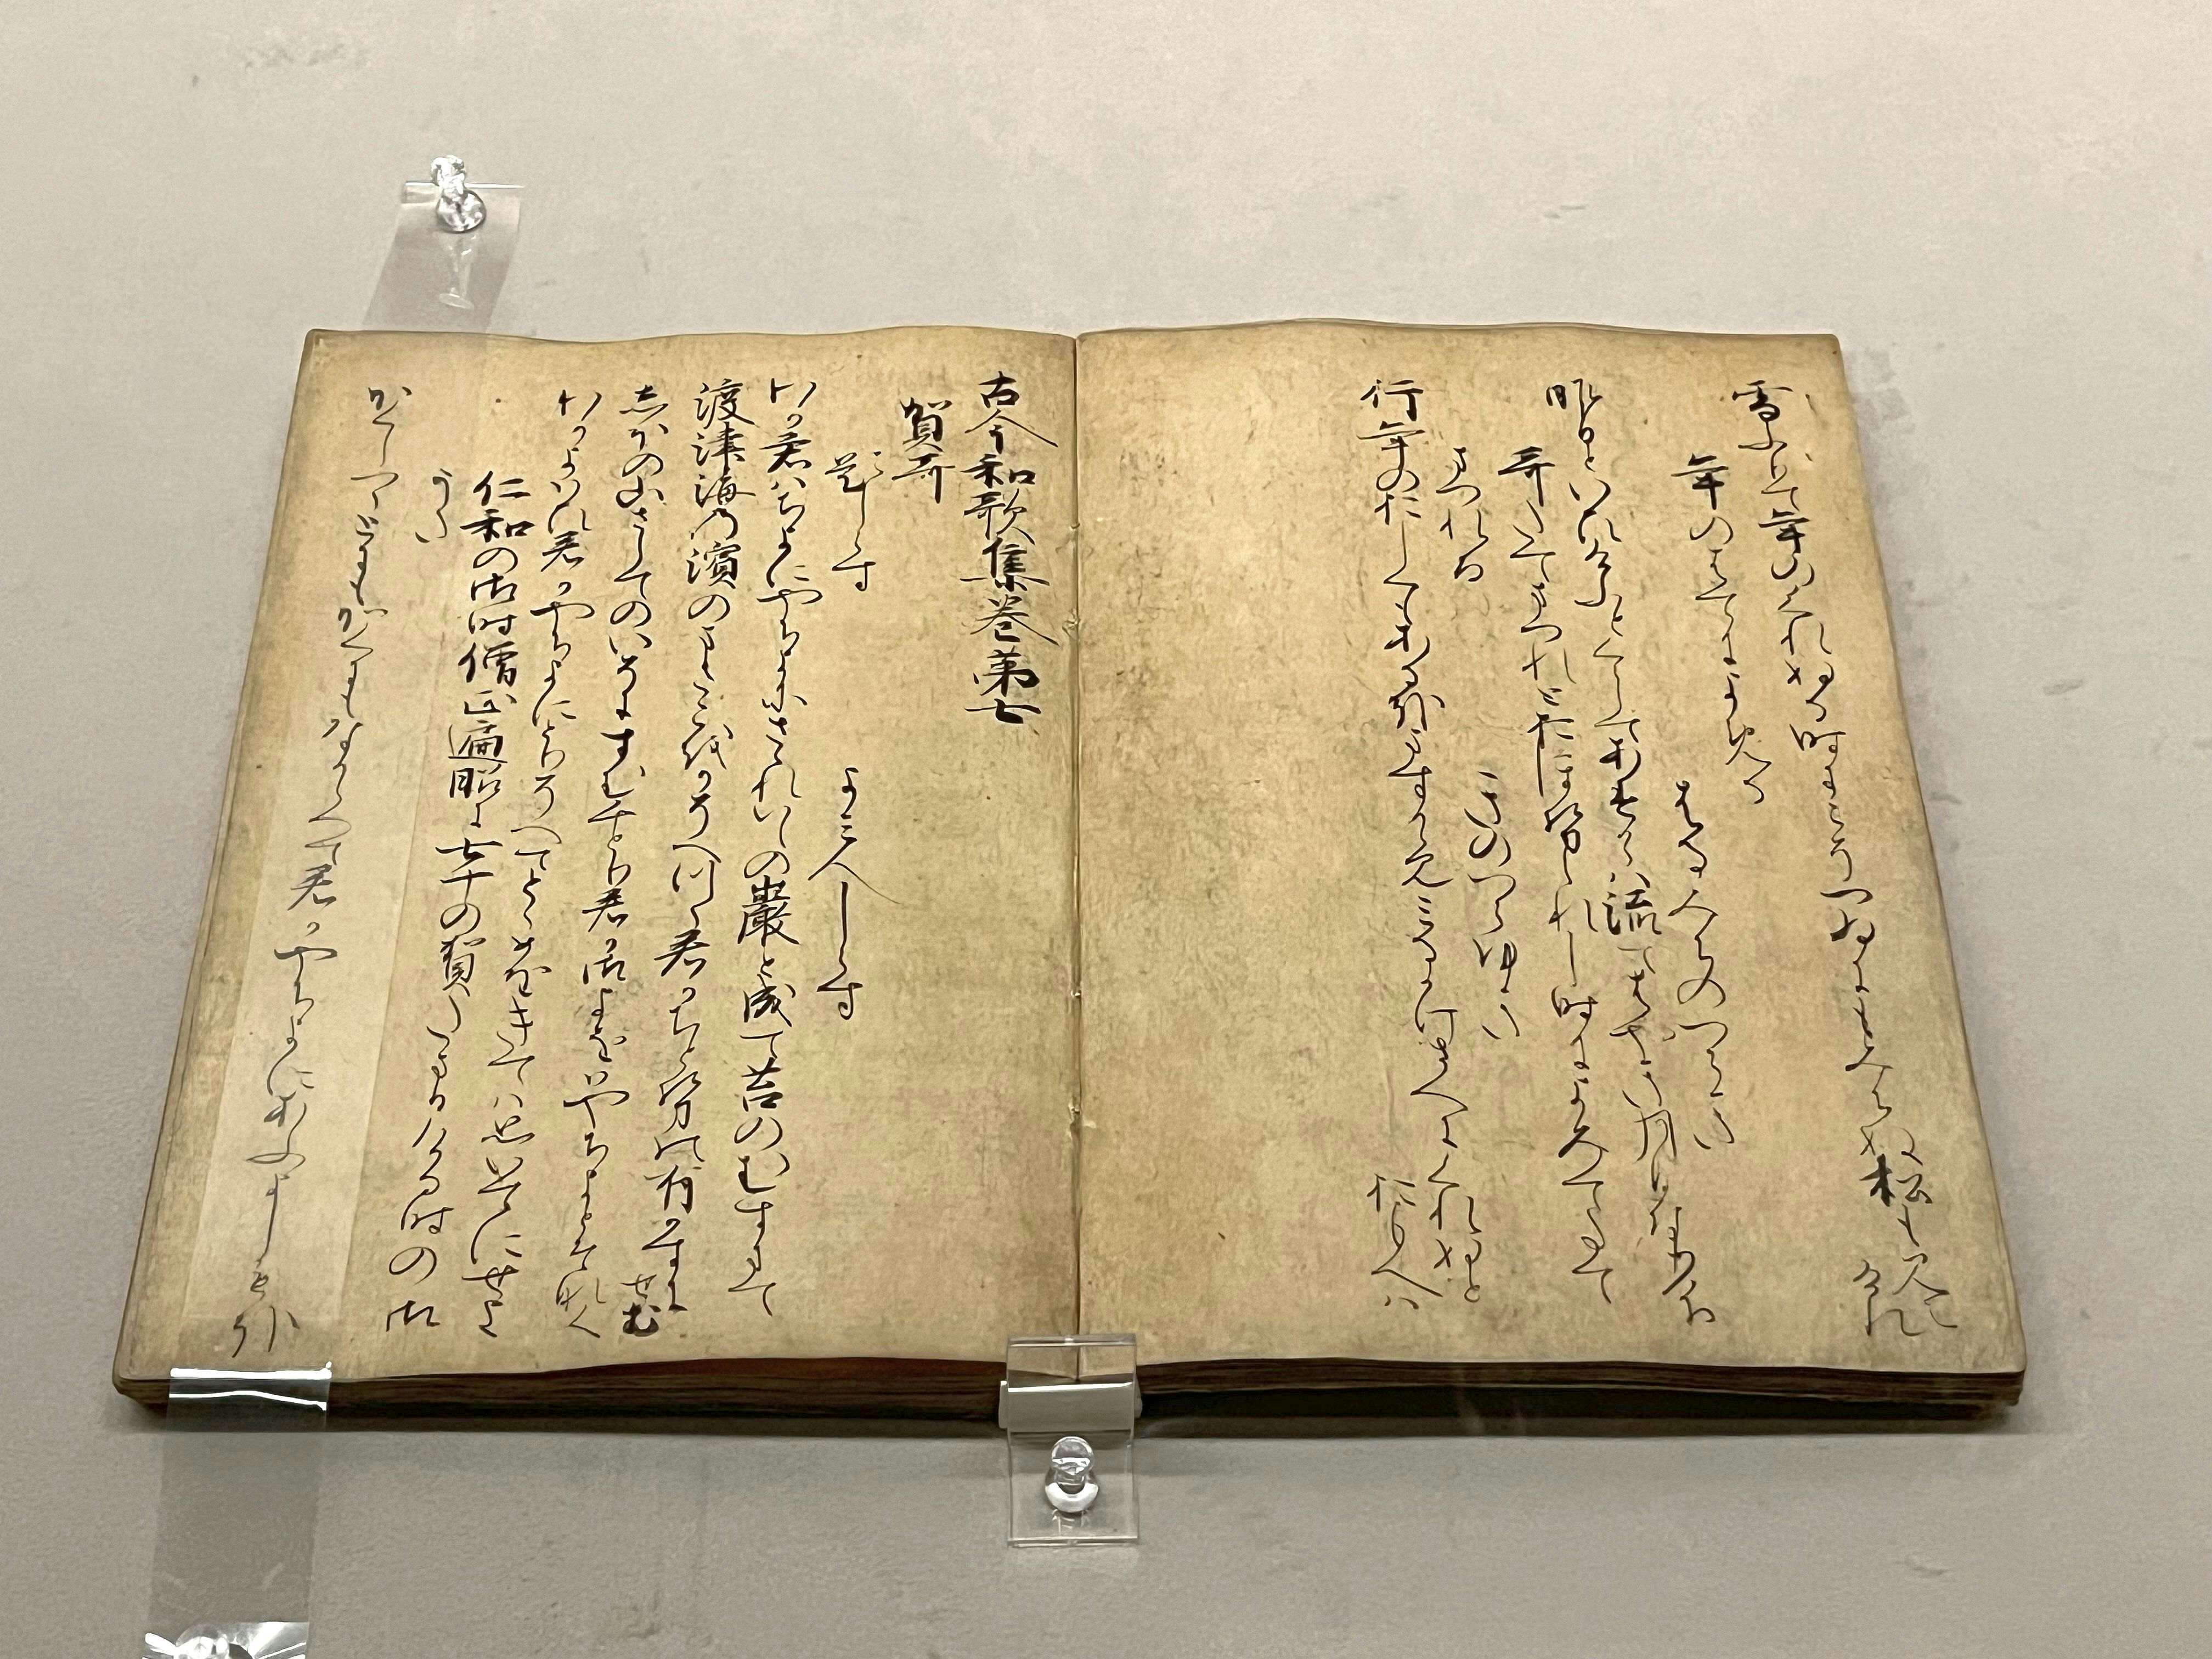 雪ふりて年のくれぬる時にこそつゐにもみちぬ松も見えけれ
年のはてによめる
はるみちのつらき
昨日といひけふとくらしてあすか川流てはやき月日なりけり
哥たてまつれとおほせられし時によみてたて
まつれる
きのつらゆき
行年のおしくもあるかなますかゝみみるかけさへにくれぬと
おもへは
古今和歌集巻第七
賀哥
題しらす
よみ人しらす
わか君はちよにやちよにさゝれいしの巌と成て苔のむすまて
渡津海の濱のまさこをかそへつゝ君かちとせの有かすにせむ
しほの山さしてのいそにすむ千とり君か御よをはやちよとそ鳴
わかよはひ君かやちよにとりそへてとゝめをきては思いてにせよ
仁和の御時僧正遍昭に七十の賀たまひける時の御
うた
かくしつゝとにもかくにもなからへて君かやちよにあふよしもかな